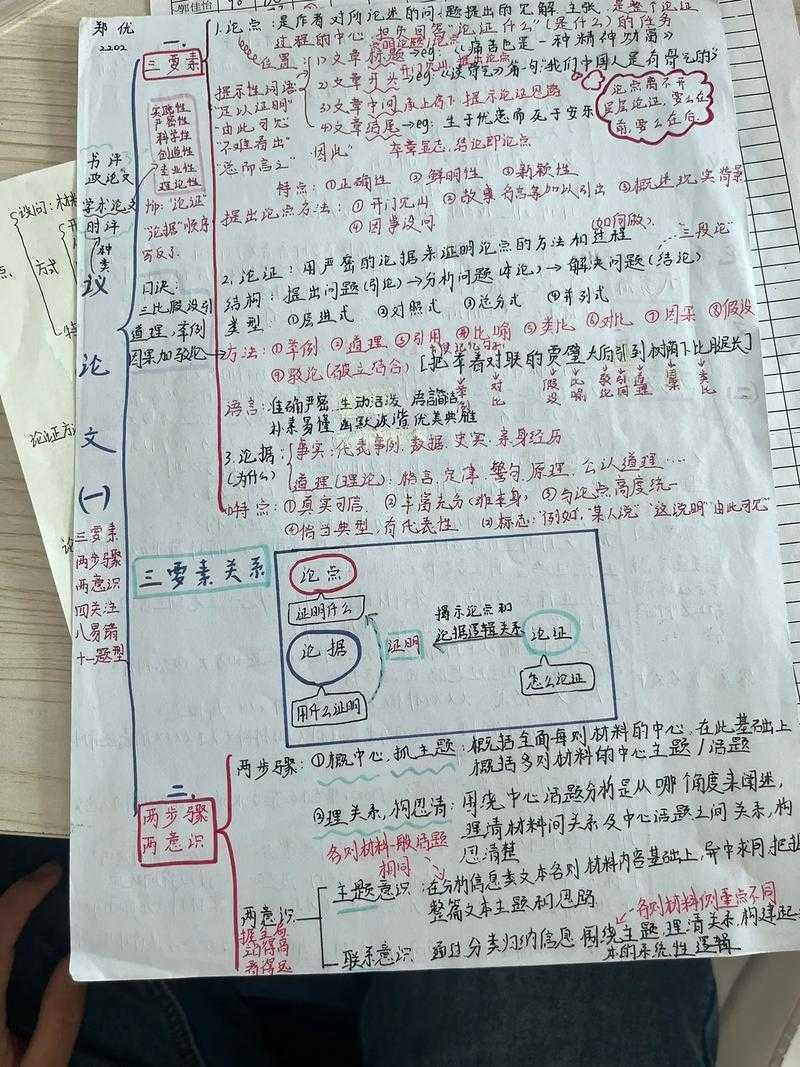 郑优
2202
郭佳怡
一、
三要素
实践性
严密性
科学性
创造性
专业性
理论性
书评
政论文
学术论文
时评
种类
tip："论证"
"论据"顺序
写反了
口诀：
三比假设引
道理，举例
因果加驳论
议
论
文
(一)
三要素
两步骤
两意识
四关注
八易错
十一题型
1.论点：是作者对所论述的问题提出的见解、主张，是整个论证
过程的中心，担负回答"论证什么"(是什么)的任务
位置：1)文章标题→eg：《痛苦也是一种精神财富》
提示性词语
"足以证明"
"由此可见"
"不难看出"
"总而言之"
"因此"
2)文章开头→eg：《谈骨气》首句"我们中国人是有骨气的"
开门见山，提出论点
3)文章中间 承上启下 提示论证思路
4)文章结尾→eg：生于忧患而死于安乐
卒章显志，结论即论点
论点离不开
层层论证，要么在
前，要么在后。
特点：①正确性 ②鲜明性 ③新颖性
提出论点方法：①开门见山 ②故事、名言等加以引出 ③概述现实背景
④因事设问
(如何做)
2.论证：用严密的论据来证明论点的方法和过程
"三段论"
结构：提出问题(引论)→分析问题(本论)→解决问题(结论)
类型：①层进式 ②对照式 ③总分式 ④并列式
方法：①举例 ②道理 ③引用 ④比喻 ⑤类比 ⑥对比 ⑦因果 ⑧假设
⑨驳论(破立结合)
[把举着对联的贾璧太后引到树荫下比腿长]
语言：准确严密，生动活泼 语言简洁
朴素易懂 幽默诙谐 优美典雅
3.论据：
(为什么)
事实：代表事例、数据、史实、亲身经历
道理(理论)：格言、定律、警句、原理、公认道理……
特点：①真实可信 ②丰富充分 ③与论点高度统一
④恰当典型，有代表性
标志："例如，某人说""这说明""由此可见"
三要素关系
论点
证明什么
论据
用什么证明
证明
揭示论点和
论据逻辑关系
论证
怎么论证
二、
两步骤
两意识
两步骤：①概中心，抓主题：概括全面每则材料的中心，在此基础上
概括多则材料的中心主题/话题
②理关系，构思清：围绕中心话题分析是从哪个角度来阐述，
理清材料间关系及中心话题之间关系，构
思清楚
各则材料一般话题
相同
两意识
主题意识：在分析信息类文本各则材料内容基础上，异中求同，把握
整篇文本主题和思路
各则材料侧重点不同
联系意识：通过分类归纳信息，围绕主题，理清关系，构建起
本的系统性逻辑
设问：
方式